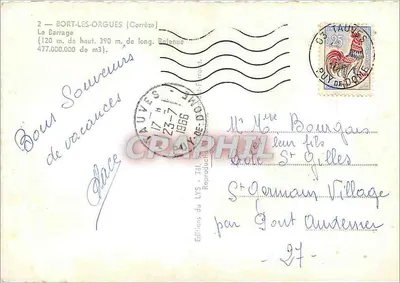 2 — BORT-LES-ORGUES (Corrèze)
Le Barrage
(120 m. de haut. 390 m. de long. Retenue
477.000.000 de m3).
Bons Souvenirs
de vacances
TAUVES
17-
23-7
1966
PUY-DE-DOME
Editions du LYS
Reproduction
63 TAUVES
PUY DE DOME
0,25
CPAPHIL
Mr Mme Bourgais
et leur fils
Côte St Gilles
St Germain Village
par Pont Audemer
- 27 -